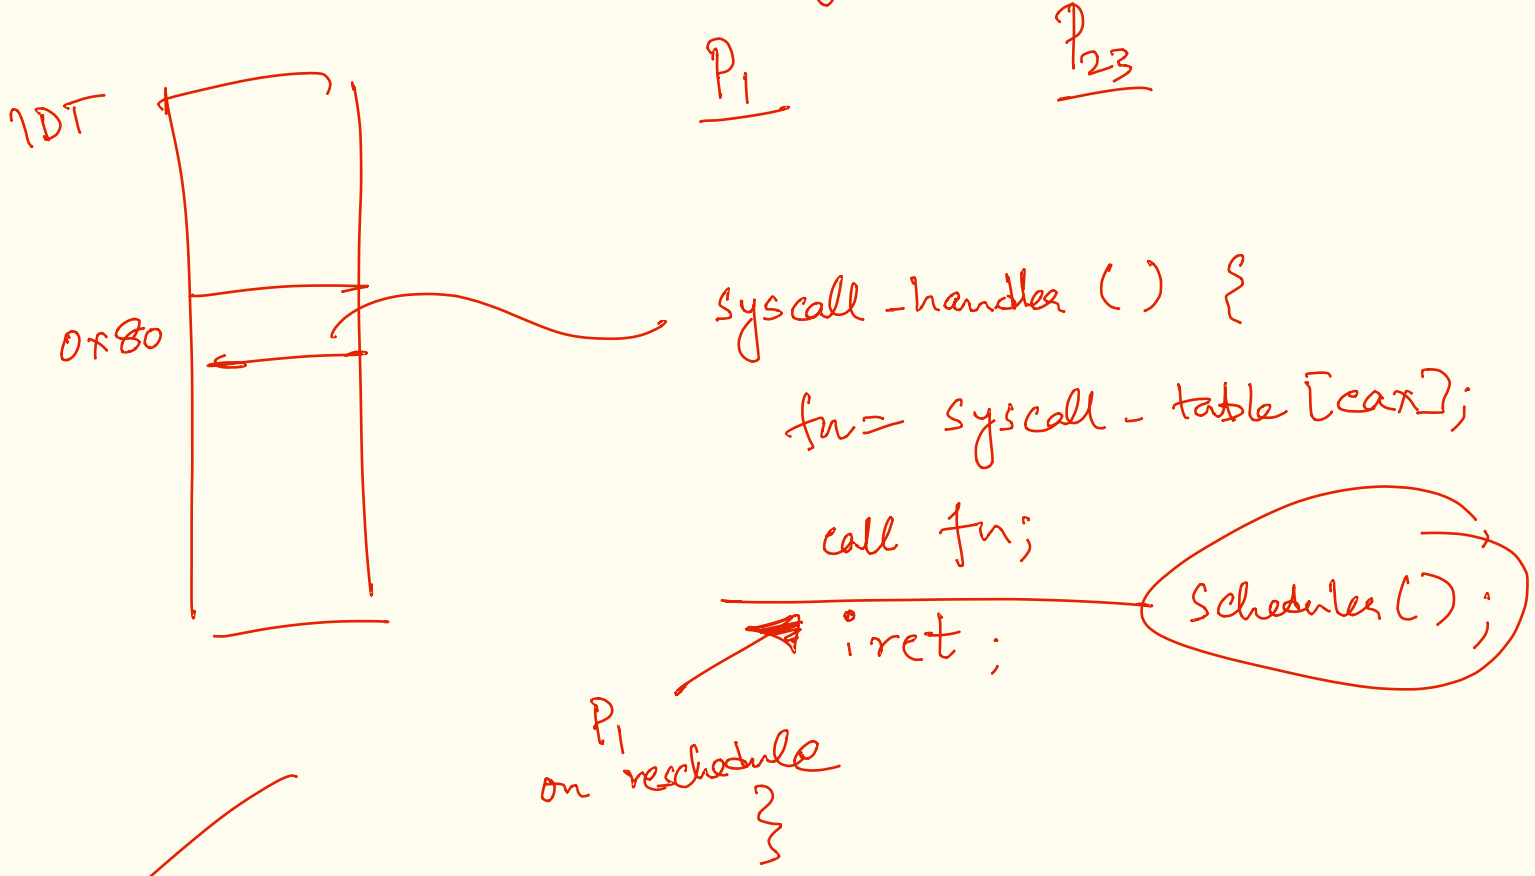 P1
P23
IDT
0x80
syscall_handler () {
fn = syscall_table [eax];
call fn;
scheduler();
iret;
P1
on reschedule
}